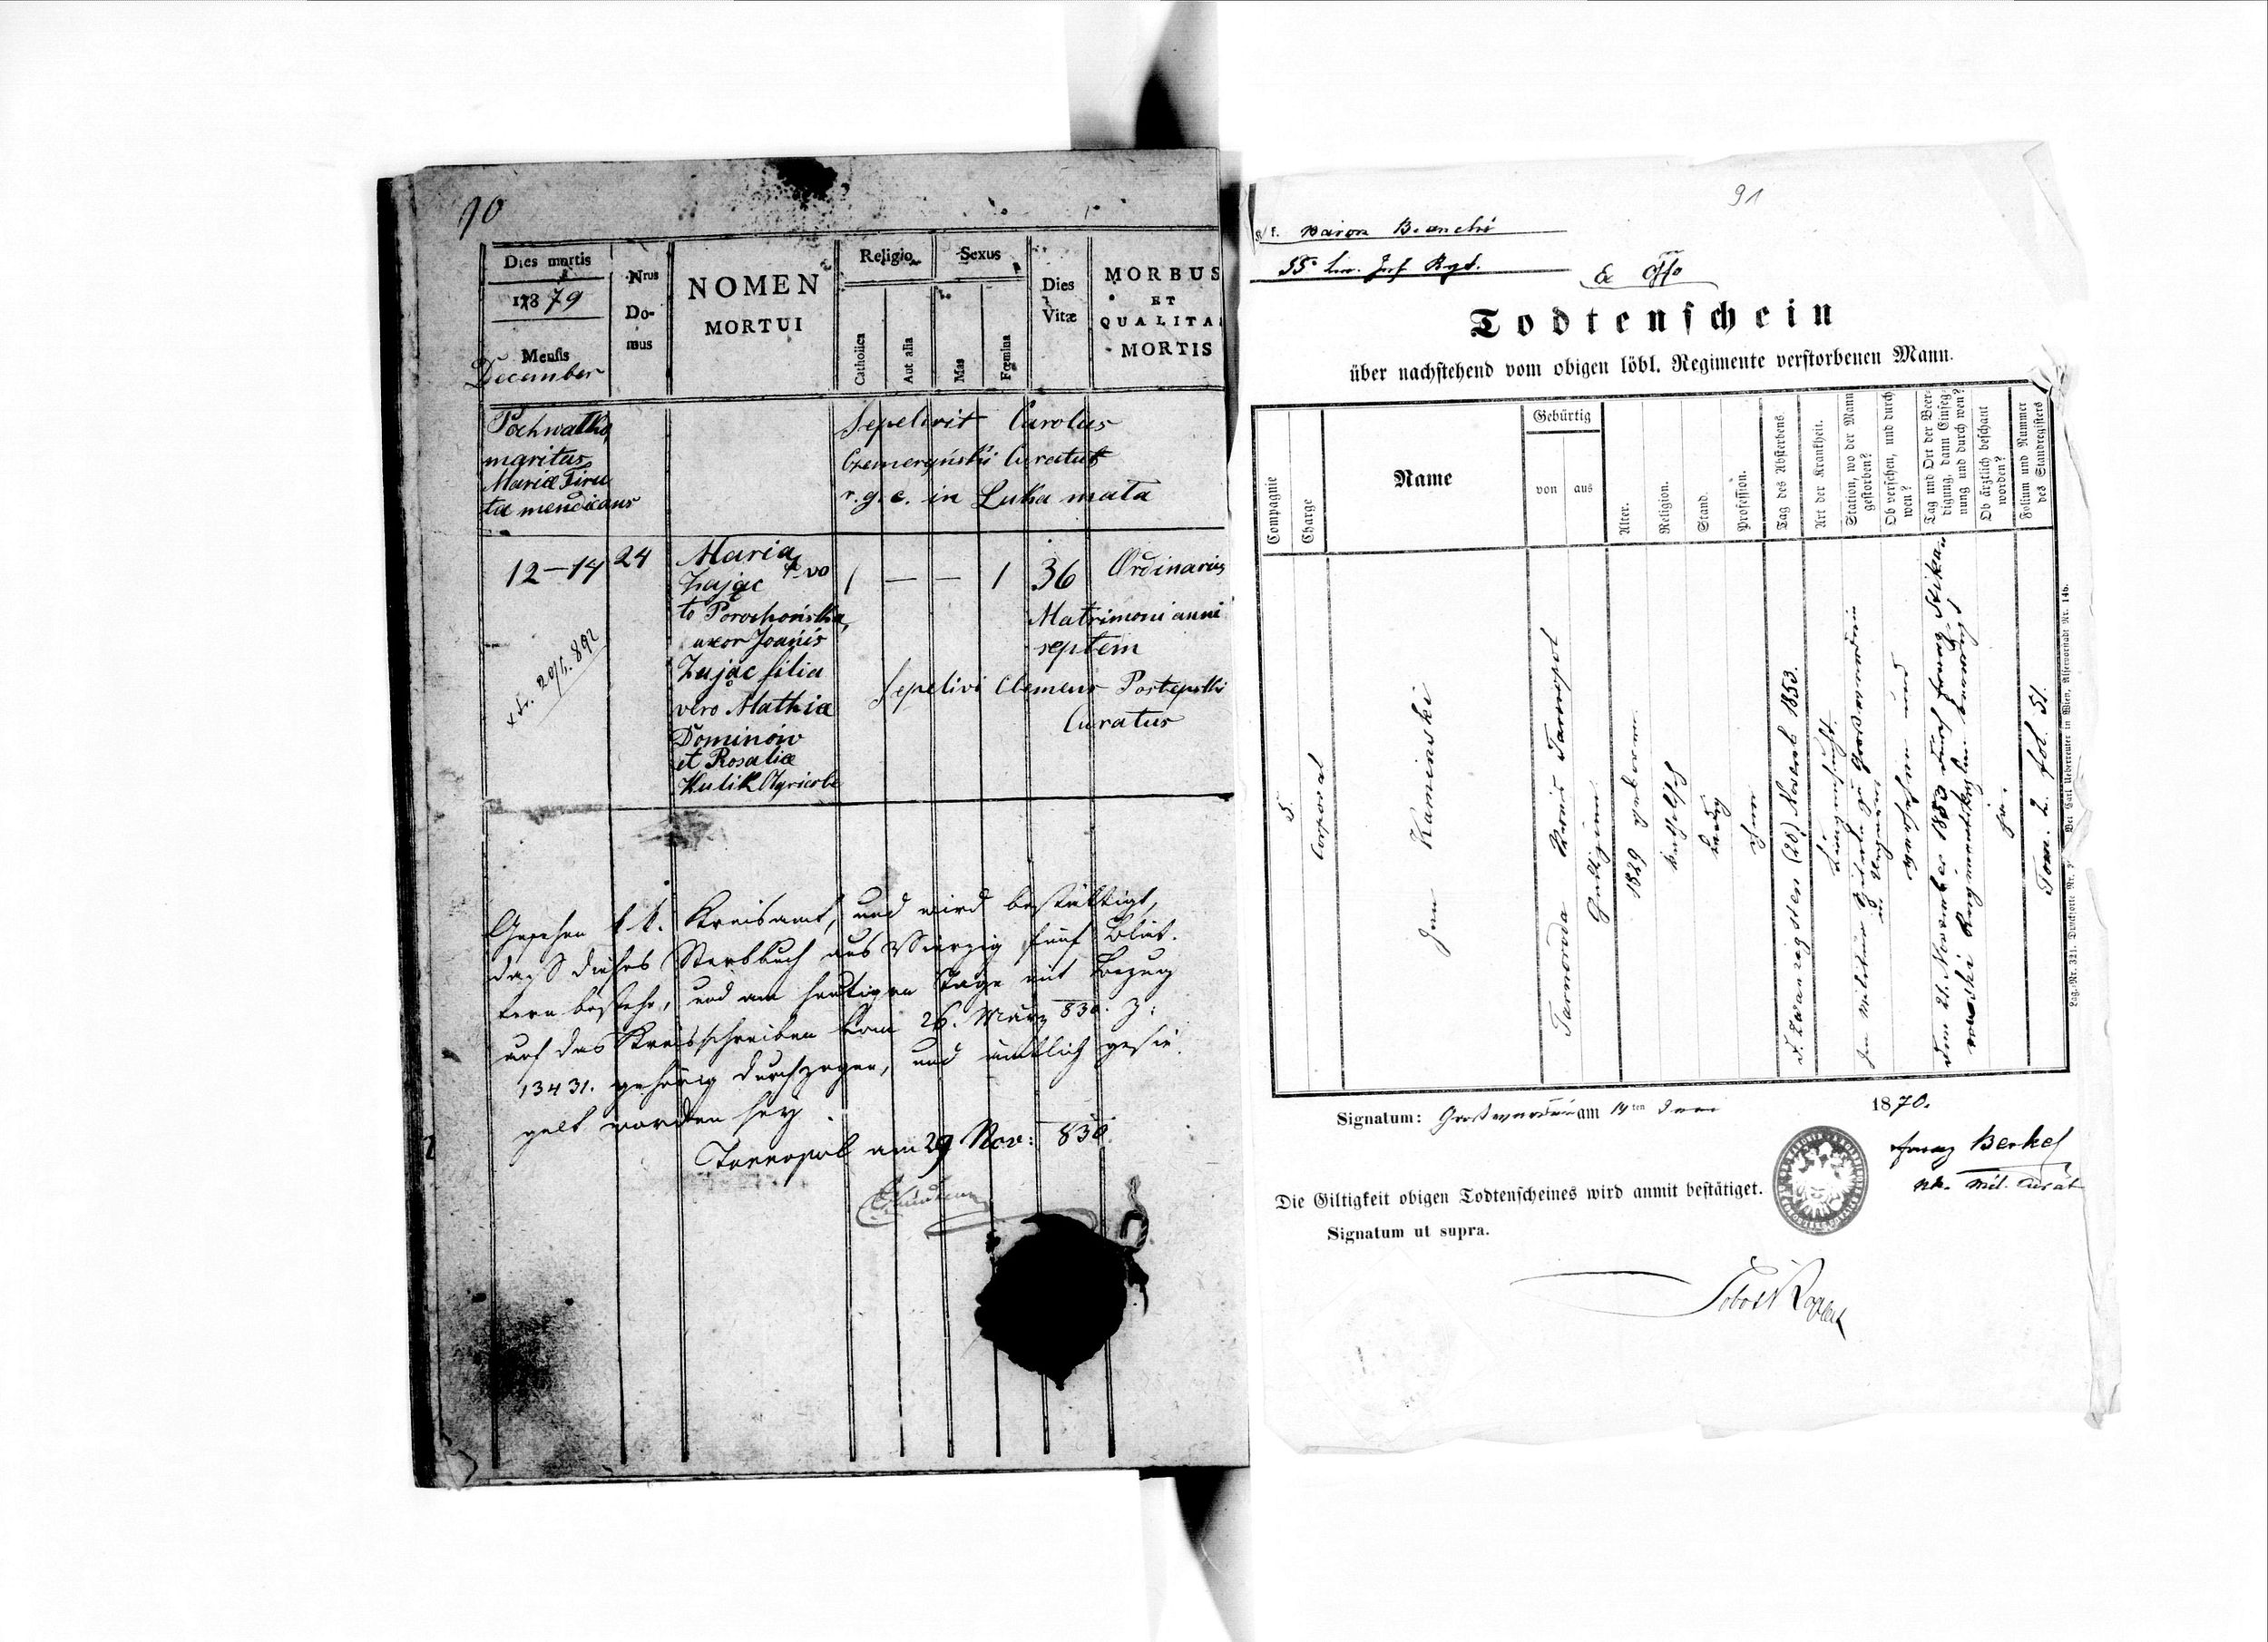 90
Dies mortis
1879
Mensis
December
Nrus
Do-
mus
NOMEN
MORTUI
Religio
Catholica
Aut alia
Sexus
Mas
Fœmina
Dies
Vitæ
MORBUS
ET
QUALITA
MORTIS
Pochwatka
maritus
Mariæ Firu
tæ mendicans
Sepelivit Carolus
Czemeryński Curatus
r. g. c. in Luka mała
12-14
24
Maria
Zając 1-vo
to Porochońska,
uxor Joanis
Zając filia
vero Mathiæ
Dominów
et Rosaliæ
Kulik Agricolæ
1 — — 1
36
Ordinarius
Matrimoni anni
septem
Sepelivi Clemens Postępski
Curatus
20/1. 892
Gesehen k. k. Kreisamt, und wird bestättigt,
daß dieses Sterbbuch aus Vierzig fünf Blät-
tern bestehe, und am heutigen Tage mit Bezug
auf das Kreisschreiben vom 26. März 830. Z:
13431. gehörig durchzogen, und ämtlich gesie-
gelt worden sey.
Tarnopol am 29 Nov: 830.
91
Baron Bianchi
55. Lin. Inf. Rgt.
Ex offo
Todtenschein
über nachstehend vom obigen löbl. Regimente verstorbenen Mann.
Compagnie
Charge
Name
Gebürtig
von
aus
Alter.
Religion.
Stand.
Profession.
Tag des Absterbens
Art der Krankheit.
Station, wo der Mann
gestorben?
Ob versehen, und durch
wen?
Tag und Ort der Beer-
digung, dann Einseg-
nung und durch wen?
Ob ärztlich beschaut
worden?
Folium und Nummer
des Standregisters
5.
Corporal
Jan Kaminski
Tarnoruda Kreis Tarnopol
Galizien
1829 geboren
katholisch
ledig
ohne
d. Zwanzigsten (20) Novemb 1853.
Lungensucht.
Im Militär Spitale zu Großwardein
in Ungarn
versehen und
den 21. November 1853 durch
Regimentskaplan beerdigt
ja.
Tom. 2. fol. 51.
Lag.-Nr. 321. Drucksorte Nr. Bei Carl Ueberreuter in Wien, Alservorstadt Nr. 146.
Signatum: Großwardein am 14ten Juni 1870.
Franz Berkel
Mil. Curat
Die Giltigkeit obigen Todtenscheines wird anmit bestätiget.
Signatum ut supra.